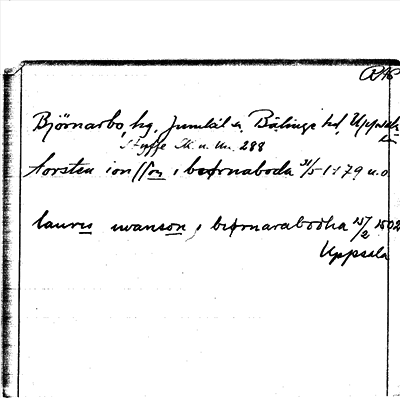 RAP
Björnarbo, hg. Jumkil sn. Bälinge hd, Uppsala
Styffe Sk. u. un. 288
torsten ionsson i biørnaboda 31/5 1479 u.o.
lauris swanson i biørnarabodha 15/2 1502
Uppsala